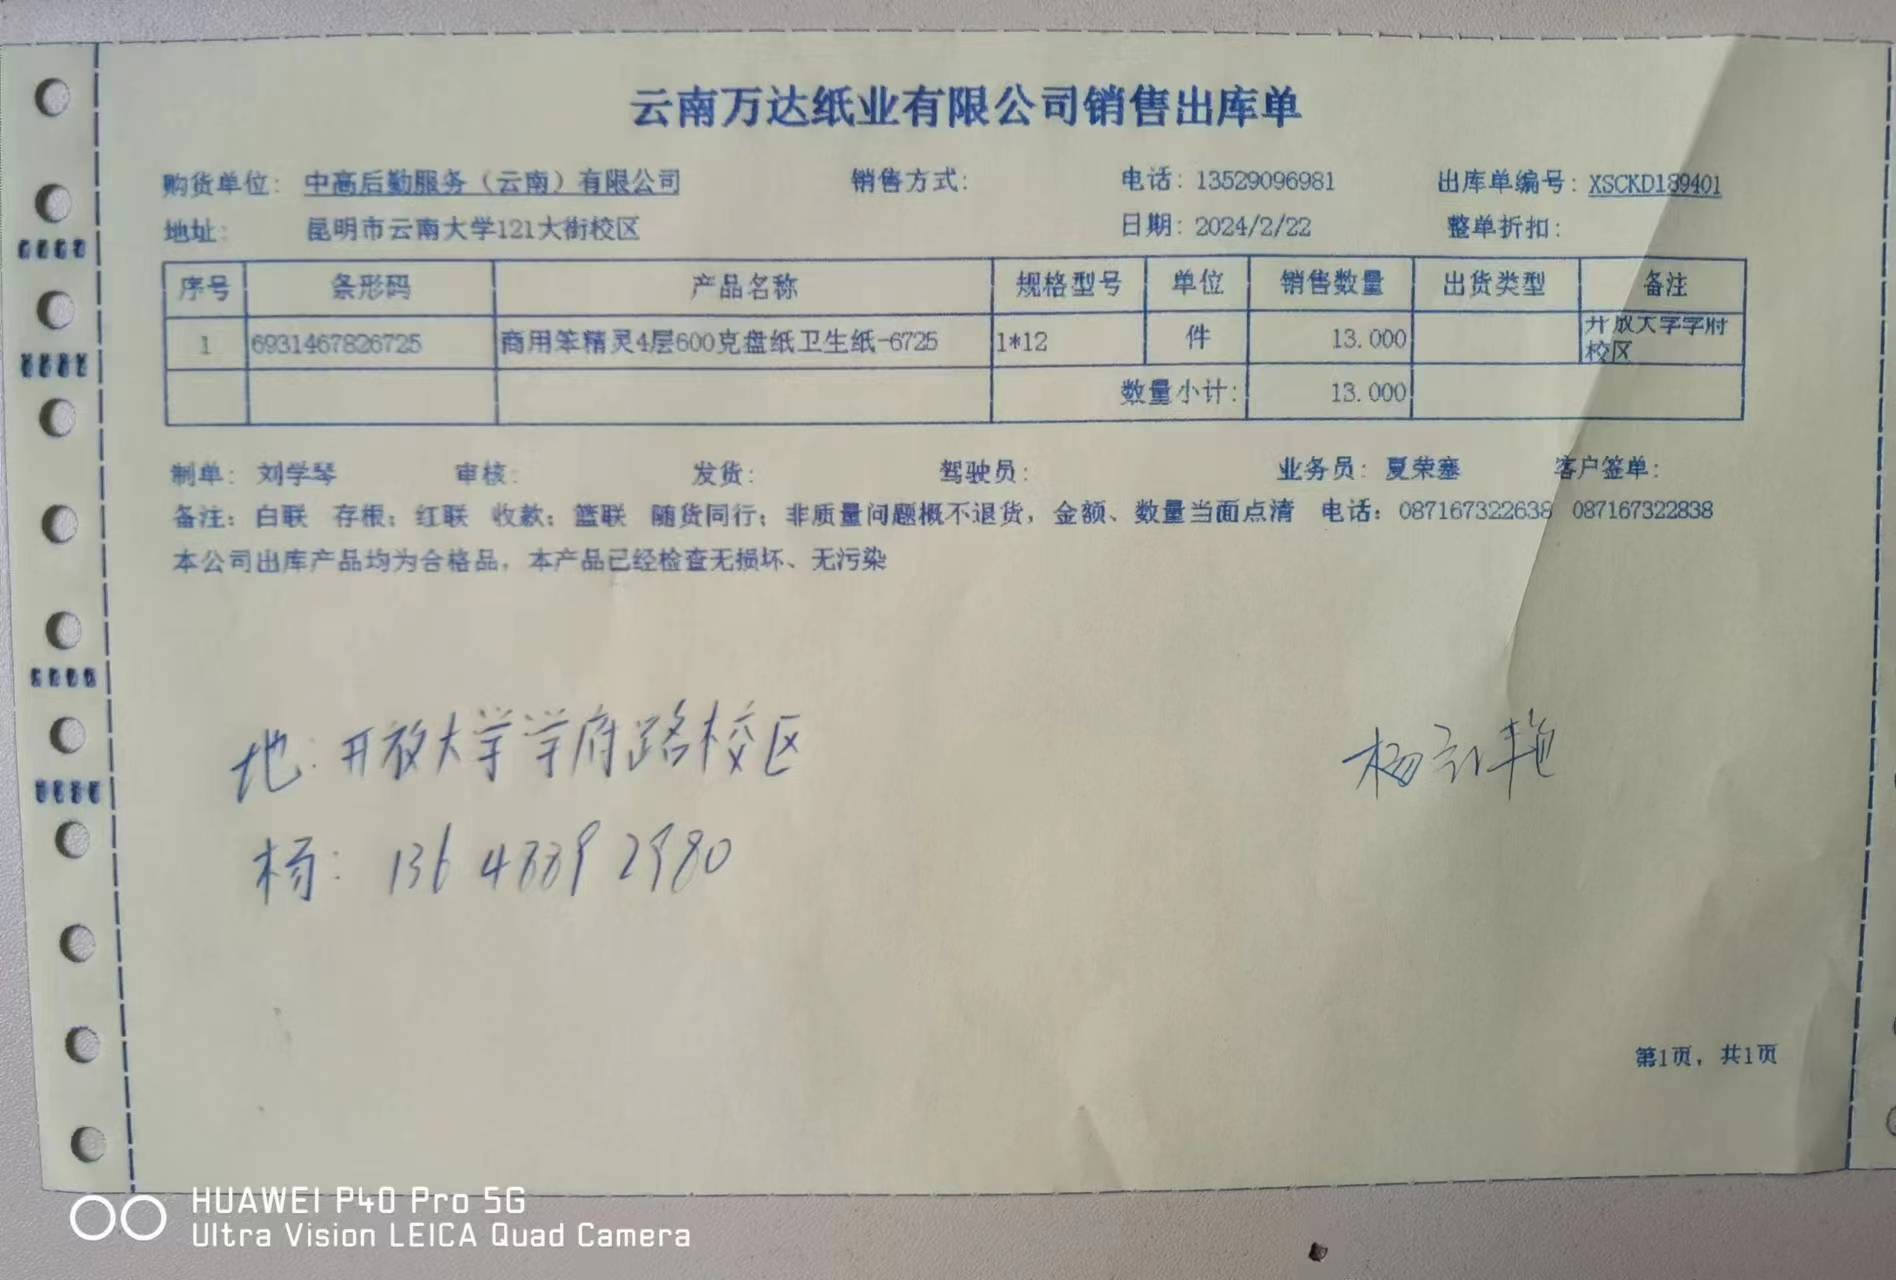 云南万达纸业有限公司销售出库单
购货单位: 中高后勤服务（云南）有限公司 销售方式: 电话: 13529096981 出库单编号: XSCKD189401
地址: 昆明市云南大学121大街校区 日期: 2024/2/22 整单折扣:
序号 条形码 产品名称 规格型号 单位 销售数量 出货类型 备注
1 6931467826725 商用笨精灵4层600克盘纸卫生纸-6725 1*12 件 13.000 开放大学学府校区
数量小计: 13.000
制单: 刘学琴 审核: 发货: 驾驶员: 业务员: 夏荣塞 客户签单:
备注: 白联 存根; 红联 收款; 篮联 随货同行; 非质量问题概不退货, 金额、数量当面点清 电话: 087167322638 087167322838
本公司出库产品均为合格品, 本产品已经检查无损坏、无污染
地: 开放大学学府路校区
杨
杨: 136
第1页, 共1页
HUAWEI P40 Pro 5G
Ultra Vision LEICA Quad Camera